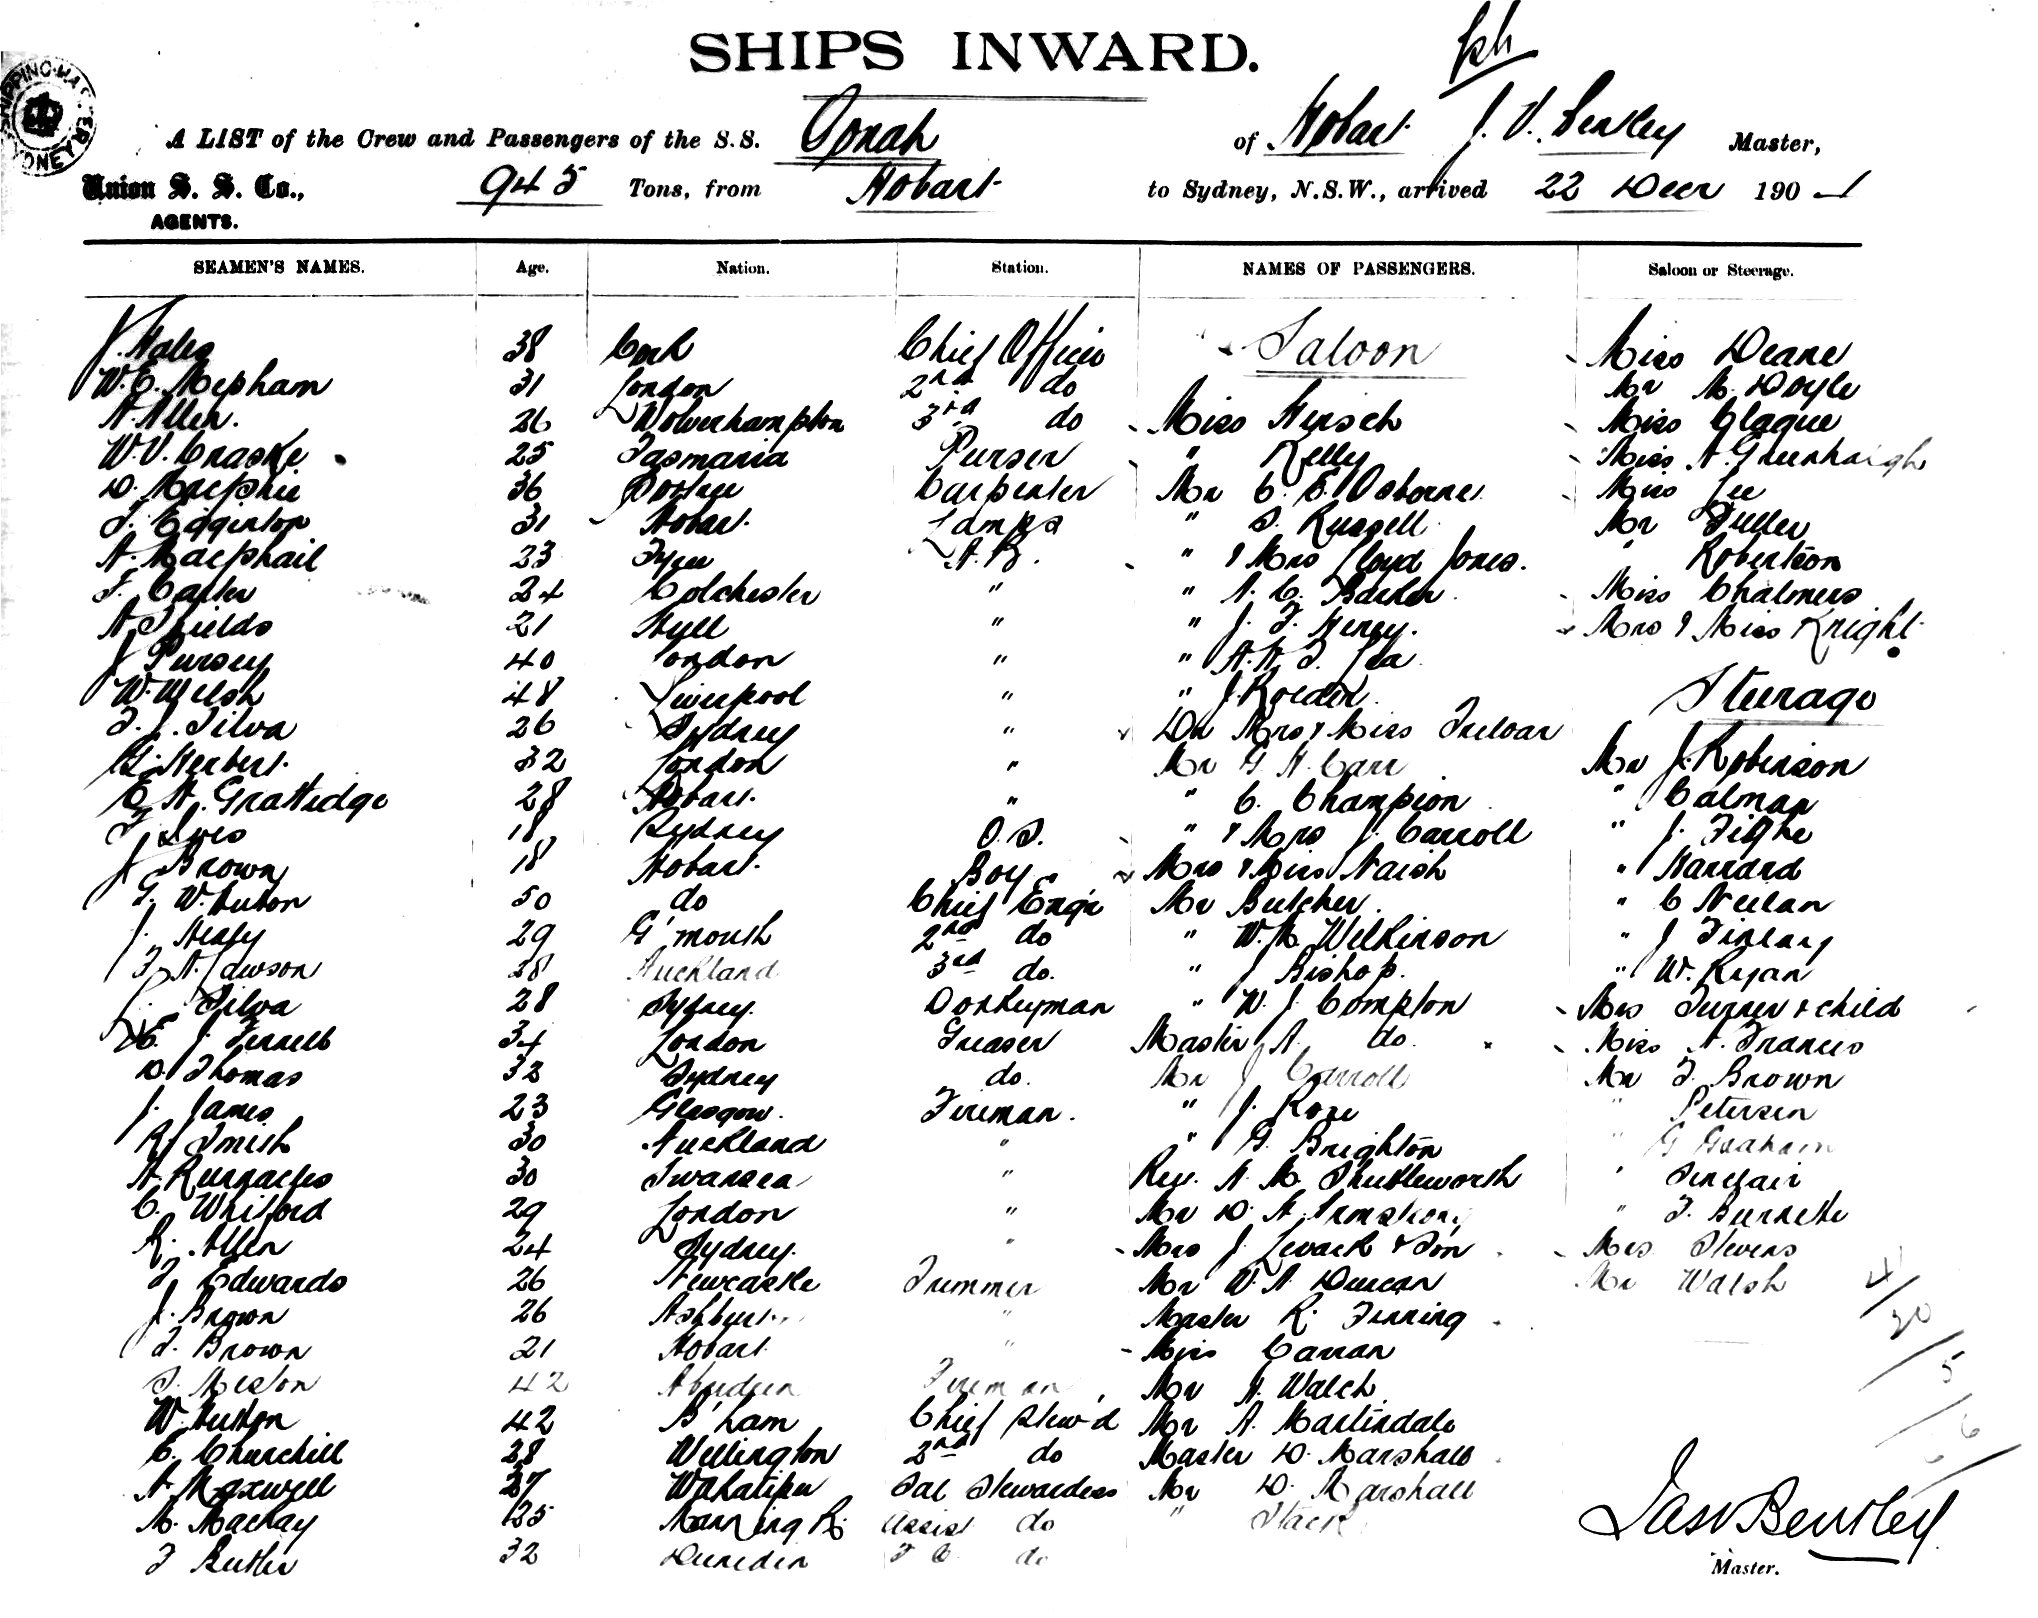 SHIPS INWARD.
A LIST of the Crew and Passengers of the S.S. Oonah of Hobart J. V. Bentley Master,
Union S. S. Co., 945 Tons, from Hobart to Sydney, N.S.W., arrived 22 Decr 1901
AGENTS.
SEAMEN'S NAMES. Age. Nation. Station. NAMES OF PASSENGERS. Saloon or Steerage.
J. Hales 38 Cork Chief Officer Saloon Miss Deane
W. E. Mepham 31 London 2nd do Mr M. Doyle
A. Allen. 26 Wolverhampton 3rd do Miss Hersch Miss Clague
W. V. Craske 25 Tasmania Purser " Kelly Miss A. Greenhaigh
D. Macphie 36 Carpenter Mr C. E. Osborne Miss Lee
T. Edginton 31 Hobart. Lamps " S. Russell Mr Fuller
A. Macphail 23 Tyree A.B. " & Mrs Lloyd Jones. " Robertson
F. Carter 24 Colchester " " A. C. Barker. Miss Chalmers
A. Shields 21 Hull " " J. F. Henry. Mrs & Miss Knight.
J. Pursey 40 London " " A. H. F. Lea
W. Welsh 48 Liverpool " " J. Roeden. Steerage
F. J. Silva 26 Sydney " Dr Mrs & Miss Treloar
G. Herbert. 32 London " Mr G. A. Carr Mr J. Robinson
E. A. Grattidge 28 Hobart. " " C. Champion " Calman
F. Ives 18 Sydney O.S. " & Mrs J. Carroll " J. Tighe
J. Brown 18 Hobart. Boy Mrs & Miss Naish " Harrard
G. W. Huton 50 do Chief Engr Mr Butcher. " C Neilan
J. Healy 29 G'mouth 2nd do " W. M. Wilkinson " J Finlay
F. A. Lawson 28 Auckland 3rd do. " J Bishop. " W. Ryan
J. Silva 28 Sydney. Donkeyman " W. J. Compton Mrs Turner & child
E. J. Ferrell 34 London Greaser Master A. do. Miss A. Frances
D. Thomas 32 Sydney do. Mr J Carroll Mr F. Brown
J. James 23 Glasgow. Fireman. " J. Rose " Petersen
R J Smith 30 Auckland " " G. Brighton " G Graham
A. 30 Swansea " Rev. A. M. Shuttleworth " Sinclair
C. Whitford 29 London " Mr D. A. Armstrong " F. Burnette
R. Allen 24 Sydney. " Mrs J. Levack & Son Mrs Stevens
F Edwards 26 Newcastle Trimmer Mr W. A. Duncan Mr Walsh
J. Brown 26 " Master R. Fenning
F. Brown 21 Hobart " Miss Carran
S. Meston 42 Aberdeen Fireman Mr H. Walch
W. Hutton 42 B'ham Chief Stew'd Mr A. Martindale
C. Churchill 28 Wellington 2nd do Master D. Marshall
A Maxwell 27 Sal Stewardess Mr D. Marshall
M. Mackay 25 Manning R. Assist do " Stack
F Butler 32 Dunedin F C do
Jas V Bentley
Master.